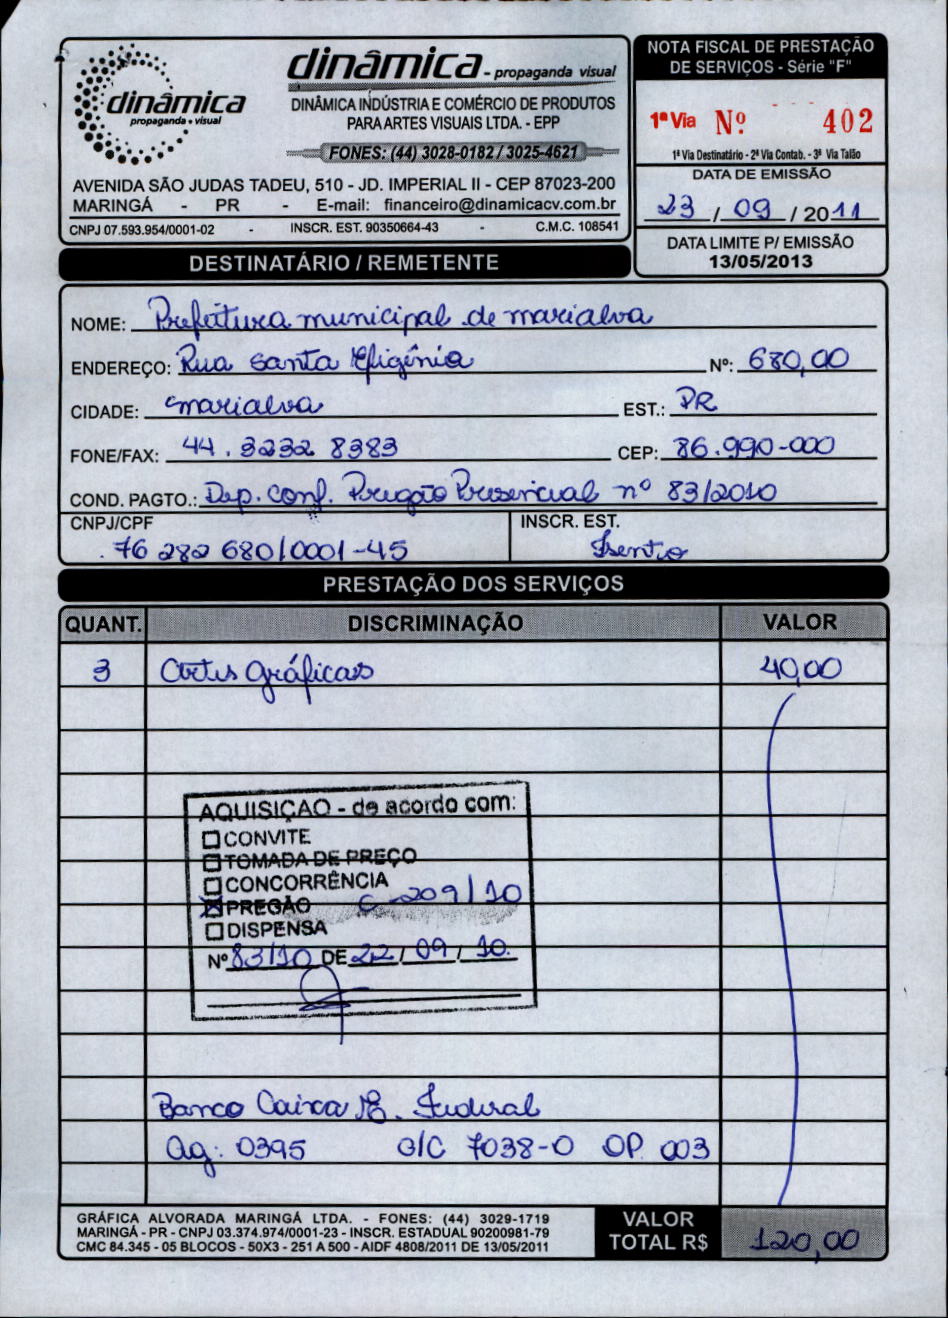 dinâmica
propaganda • visual
dinâmica - propaganda visual
DINÂMICA INDÚSTRIA E COMÉRCIO DE PRODUTOS
PARA ARTES VISUAIS LTDA. - EPP
FONES: (44) 3028-0182 / 3025-4621
AVENIDA SÃO JUDAS TADEU, 510 - JD. IMPERIAL II - CEP 87023-200
MARINGÁ - PR - E-mail: financeiro@dinamicacv.com.br
CNPJ 07.593.954/0001-02 - INSCR. EST. 90350664-43 - C.M.C. 108541
NOTA FISCAL DE PRESTAÇÃO
DE SERVIÇOS - Série "F"
1ª Via Nº 402
1ª Via Destinatário - 2ª Via Contab. - 3ª Via Talão
DATA DE EMISSÃO
23 / 09 / 2011
DATA LIMITE P/ EMISSÃO
13/05/2013
DESTINATÁRIO / REMETENTE
NOME: Prefeitura municipal de marialva
ENDEREÇO: Rua santa Efigênia Nº: 680,00
CIDADE: marialva EST.: PR
FONE/FAX: 44. 3232 8383 CEP: 86.990-000
COND. PAGTO.: Dep. conf. Pregão Presencial nº 83/2010
CNPJ/CPF INSCR. EST.
76 282 680/0001-45 Isento
PRESTAÇÃO DOS SERVIÇOS
QUANT. DISCRIMINAÇÃO VALOR
3 Artes gráficas 40,00
AQUISIÇÃO - de acordo com:
CONVITE
TOMADA DE PREÇO
CONCORRÊNCIA
PREGÃO C-209/10
DISPENSA
Nº 83/10 DE 22 / 09 / 10.
Banco Caixa E. Federal
Ag: 0395 C/C 7038-0 OP. 003
GRÁFICA ALVORADA MARINGÁ LTDA. - FONES: (44) 3029-1719
MARINGÁ - PR - CNPJ 03.374.974/0001-23 - INSCR. ESTADUAL 90200981-79
CMC 84.345 - 05 BLOCOS - 50X3 - 251 A 500 - AIDF 4808/2011 DE 13/05/2011
VALOR
TOTAL R$ 120,00